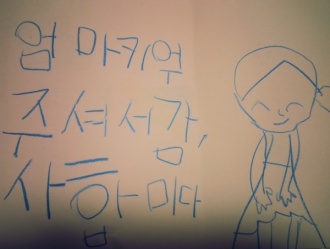 엄마키워
주셔서감,
사합미다